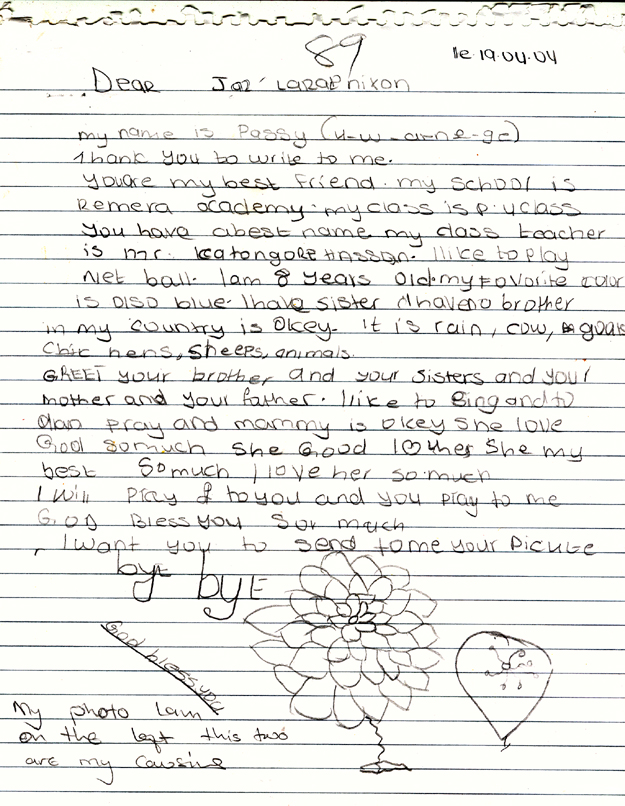 89
le 19.04.04
Dear
my name is Passy (u-w-a-n-e-ge)
Thank you to write to me.
youare my best Friend. my school is
Remera academy. my class is p.u class
you have abest name my class teacher
is mr. Katongore Hassan. I like to play
Net ball. Iam 8 years old. my Favorite color
is also blue. I have sister Ihaveno brother
in my country is Okey. it is rain, cow, goats
Chic hens, sheeps, animals.
GREET your brother and your sisters and your
mother and your father. I like to sing and to
dan pray and mammy is okey she love
God somuch she Good mother she my
best somuch I love her so.much
I will pray to you and you pray to me
GOD Bless you sor much
I want you to send tome your picture
bye bye
God bless you
My photo Iam
on the left this two
are my cousins